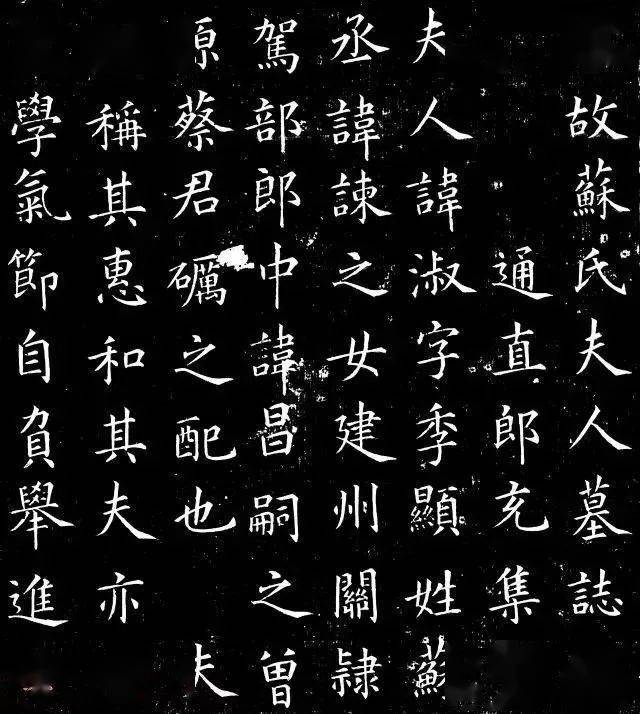 故蘇氏夫人墓誌
通直郎充集
夫人諱淑字季顯姓蘇
丞諱諫之女建州關隸
駕部郎中諱昌嗣之曾
原蔡君礪之配也夫
稱其惠和其夫亦
學氣節自負舉進